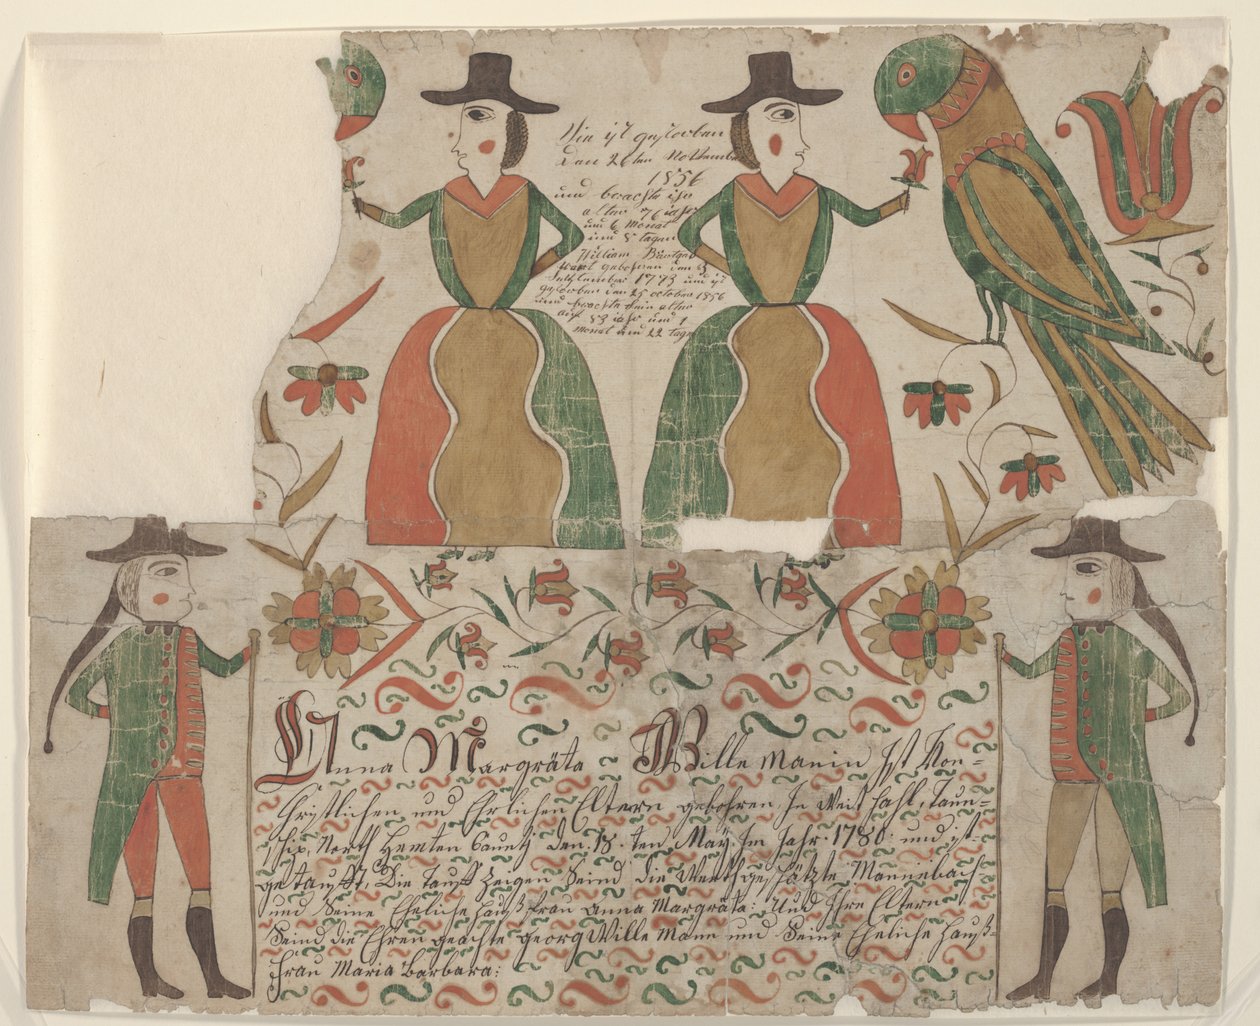 Sie ist gestorben
den 26ten November
1856
und brachte ihr
alter 76 iahr
und 6 Monat
und 8 tagen
William Büntgen
wart gebohren den 3
September 1773 und ist
gestorben den 25 october 1856
und brachte sein alter
auf 83 iahr und 1
Monat und 22 tagen
Anna Margräta Wille Manin Ist Von-
Christlichen und Ehrlichen Eltern gebohren, In Weit hahl, Taun=
schip, North Hemten Caunty den 18 ten May Im Jahr 1780: und ist
getaufft, Die Tauff Zeigen Seind die Werthgeschätzte Mannebach
und Seine Eheliche Hauß frau Anna Margräta: Und Ihre Eltern
Seind die Ehren geachte georg Wille Mann und Seine Eheliche Hauß-
frau Maria Barbara: